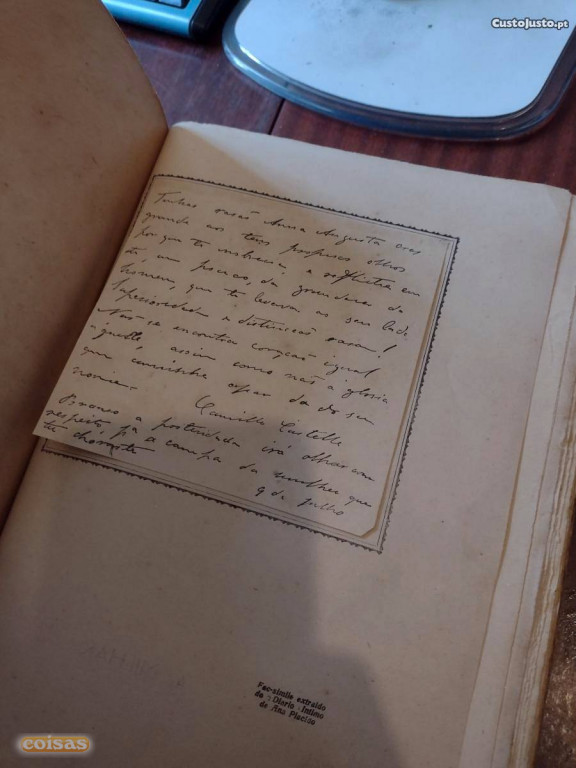 CustoJusto.pt
Tinhas rasaõ Anna Augusta eras
grande aos teus proprios olhos
por que te mostrava e reflectia em
ti, um pouco, da grandeza do
homem, que te levava ao seu lado
Superioridade e distincçaõ rara!
Naõ se encontra coraçaõ igual
aquelle, assim como naõ a gloria
que caminhe apar da do seu
nome. Camillo Castello
Branco a posteridade ira olhar com
respeito, p.ª a campa da mulher que
tu choraste
9 de Julho
Fac-simile extraido
do Diario Intimo
de Ana Placido
coisas